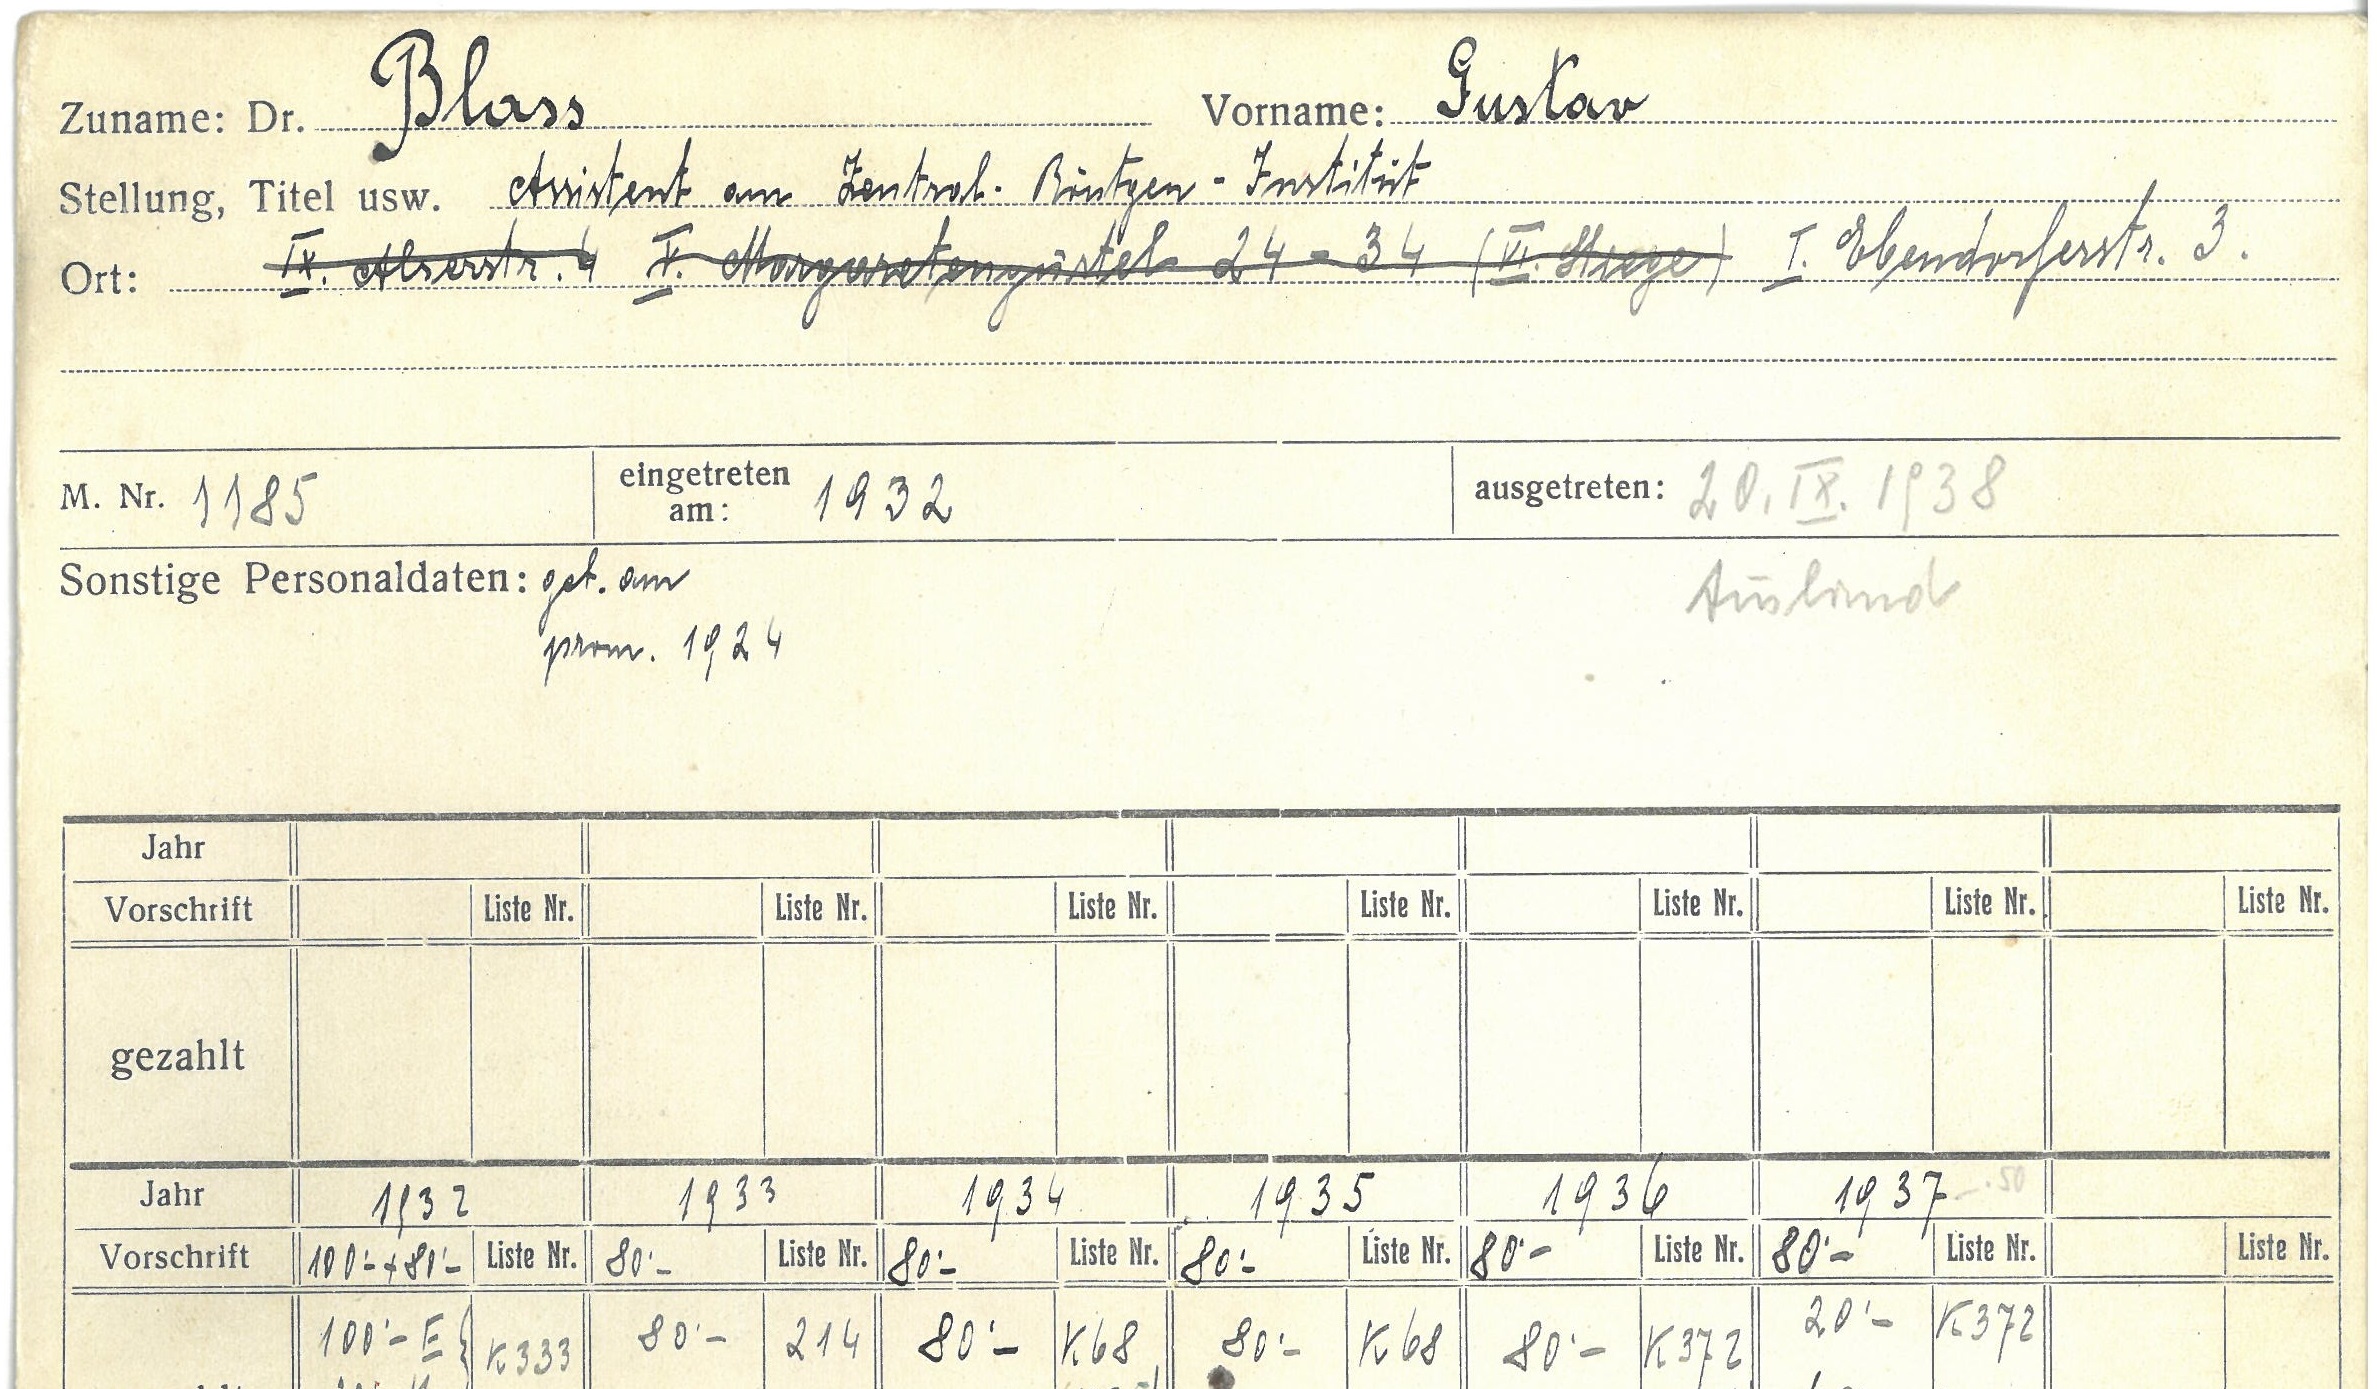 Zuname: Dr. Blass Vorname: Gustav
Stellung, Titel usw. Assistent am Zentral-Röntgen-Institut
Ort: IX. Alserstr. 4 V. Margaretengürtel 24-34 (VI. Stiege) I. Ebendorferstr. 3.
M. Nr. 1185 eingetreten am: 1932 ausgetreten: 20. IX. 1938
Sonstige Personaldaten: geb. am Ausland
prom. 1924
Jahr
Vorschrift Liste Nr. Liste Nr. Liste Nr. Liste Nr. Liste Nr. Liste Nr. Liste Nr.
gezahlt
Jahr 1932 1933 1934 1935 1936 1937 -.50
Vorschrift 100'- + 80'- Liste Nr. 80'- Liste Nr. 80'- Liste Nr. 80'- Liste Nr. 80'- Liste Nr. 80'- Liste Nr. Liste Nr.
100'- E K333 80'- 214 80'- K68 80'- K68 80'- K372 20'- K372